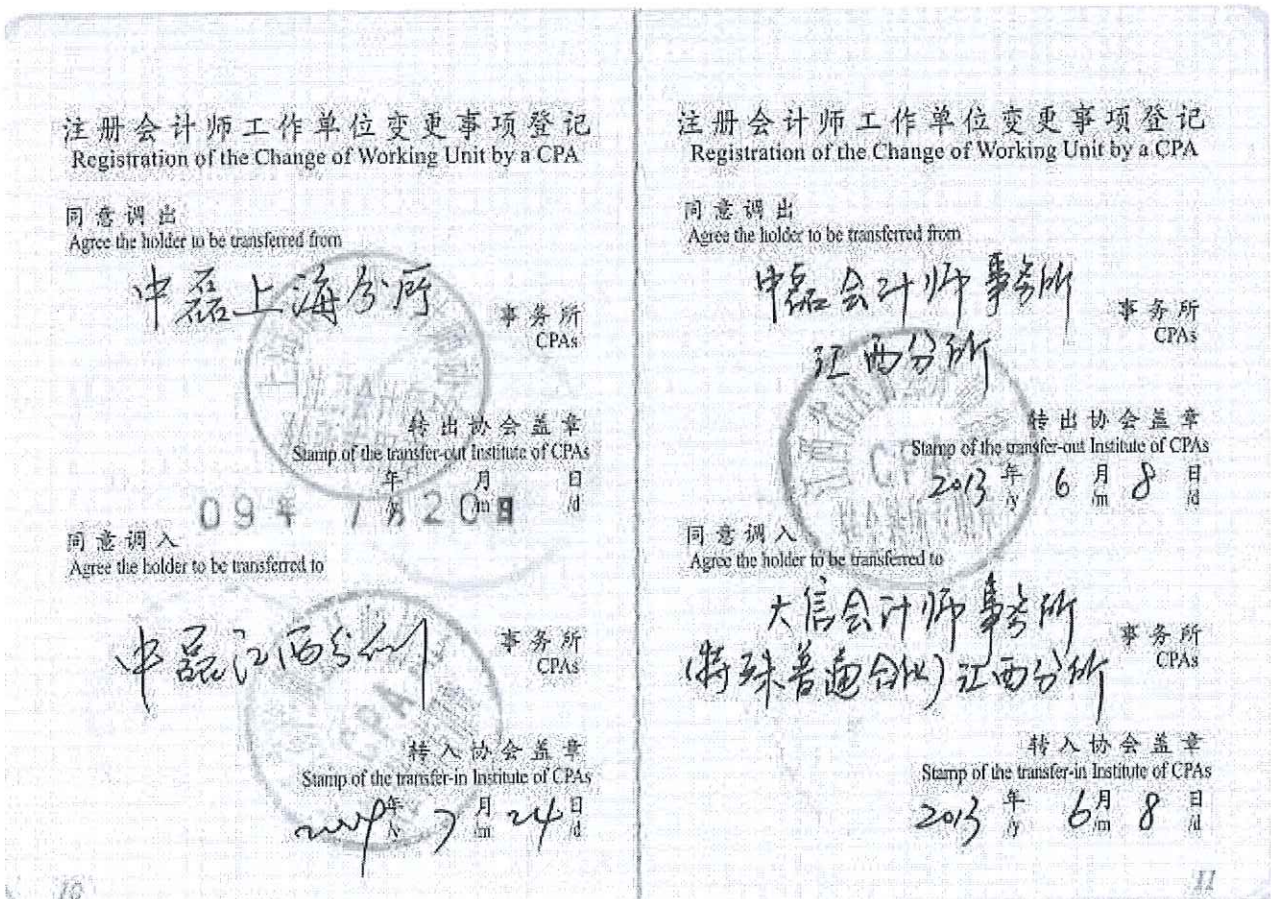 注册会计师工作单位变更事项登记
Registration of the Change of Working Unit by a CPA
同意调出
Agree the holder to be transferred from
中磊上海分所
事务所
CPAs
转出协会盖章
Stamp of the transfer-out Institute of CPAs
年 月 日
/y /m /d
同意调入
Agree the holder to be transferred to
中磊江西分所
事务所
CPAs
CPA
转入协会盖章
Stamp of the transfer-in Institute of CPAs
2009 年 7 月 24 日
/y /m /d
10
注册会计师工作单位变更事项登记
Registration of the Change of Working Unit by a CPA
同意调出
Agree the holder to be transferred from
中磊会计师事务所
江西分所
事务所
CPAs
CPA
转出协会盖章
Stamp of the transfer-out Institute of CPAs
2013 年 6 月 8 日
/y /m /d
同意调入
Agree the holder to be transferred to
大信会计师事务所
(特殊普通合伙)江西分所
事务所
CPAs
转入协会盖章
Stamp of the transfer-in Institute of CPAs
2013 年 6 月 8 日
/y /m /d
11